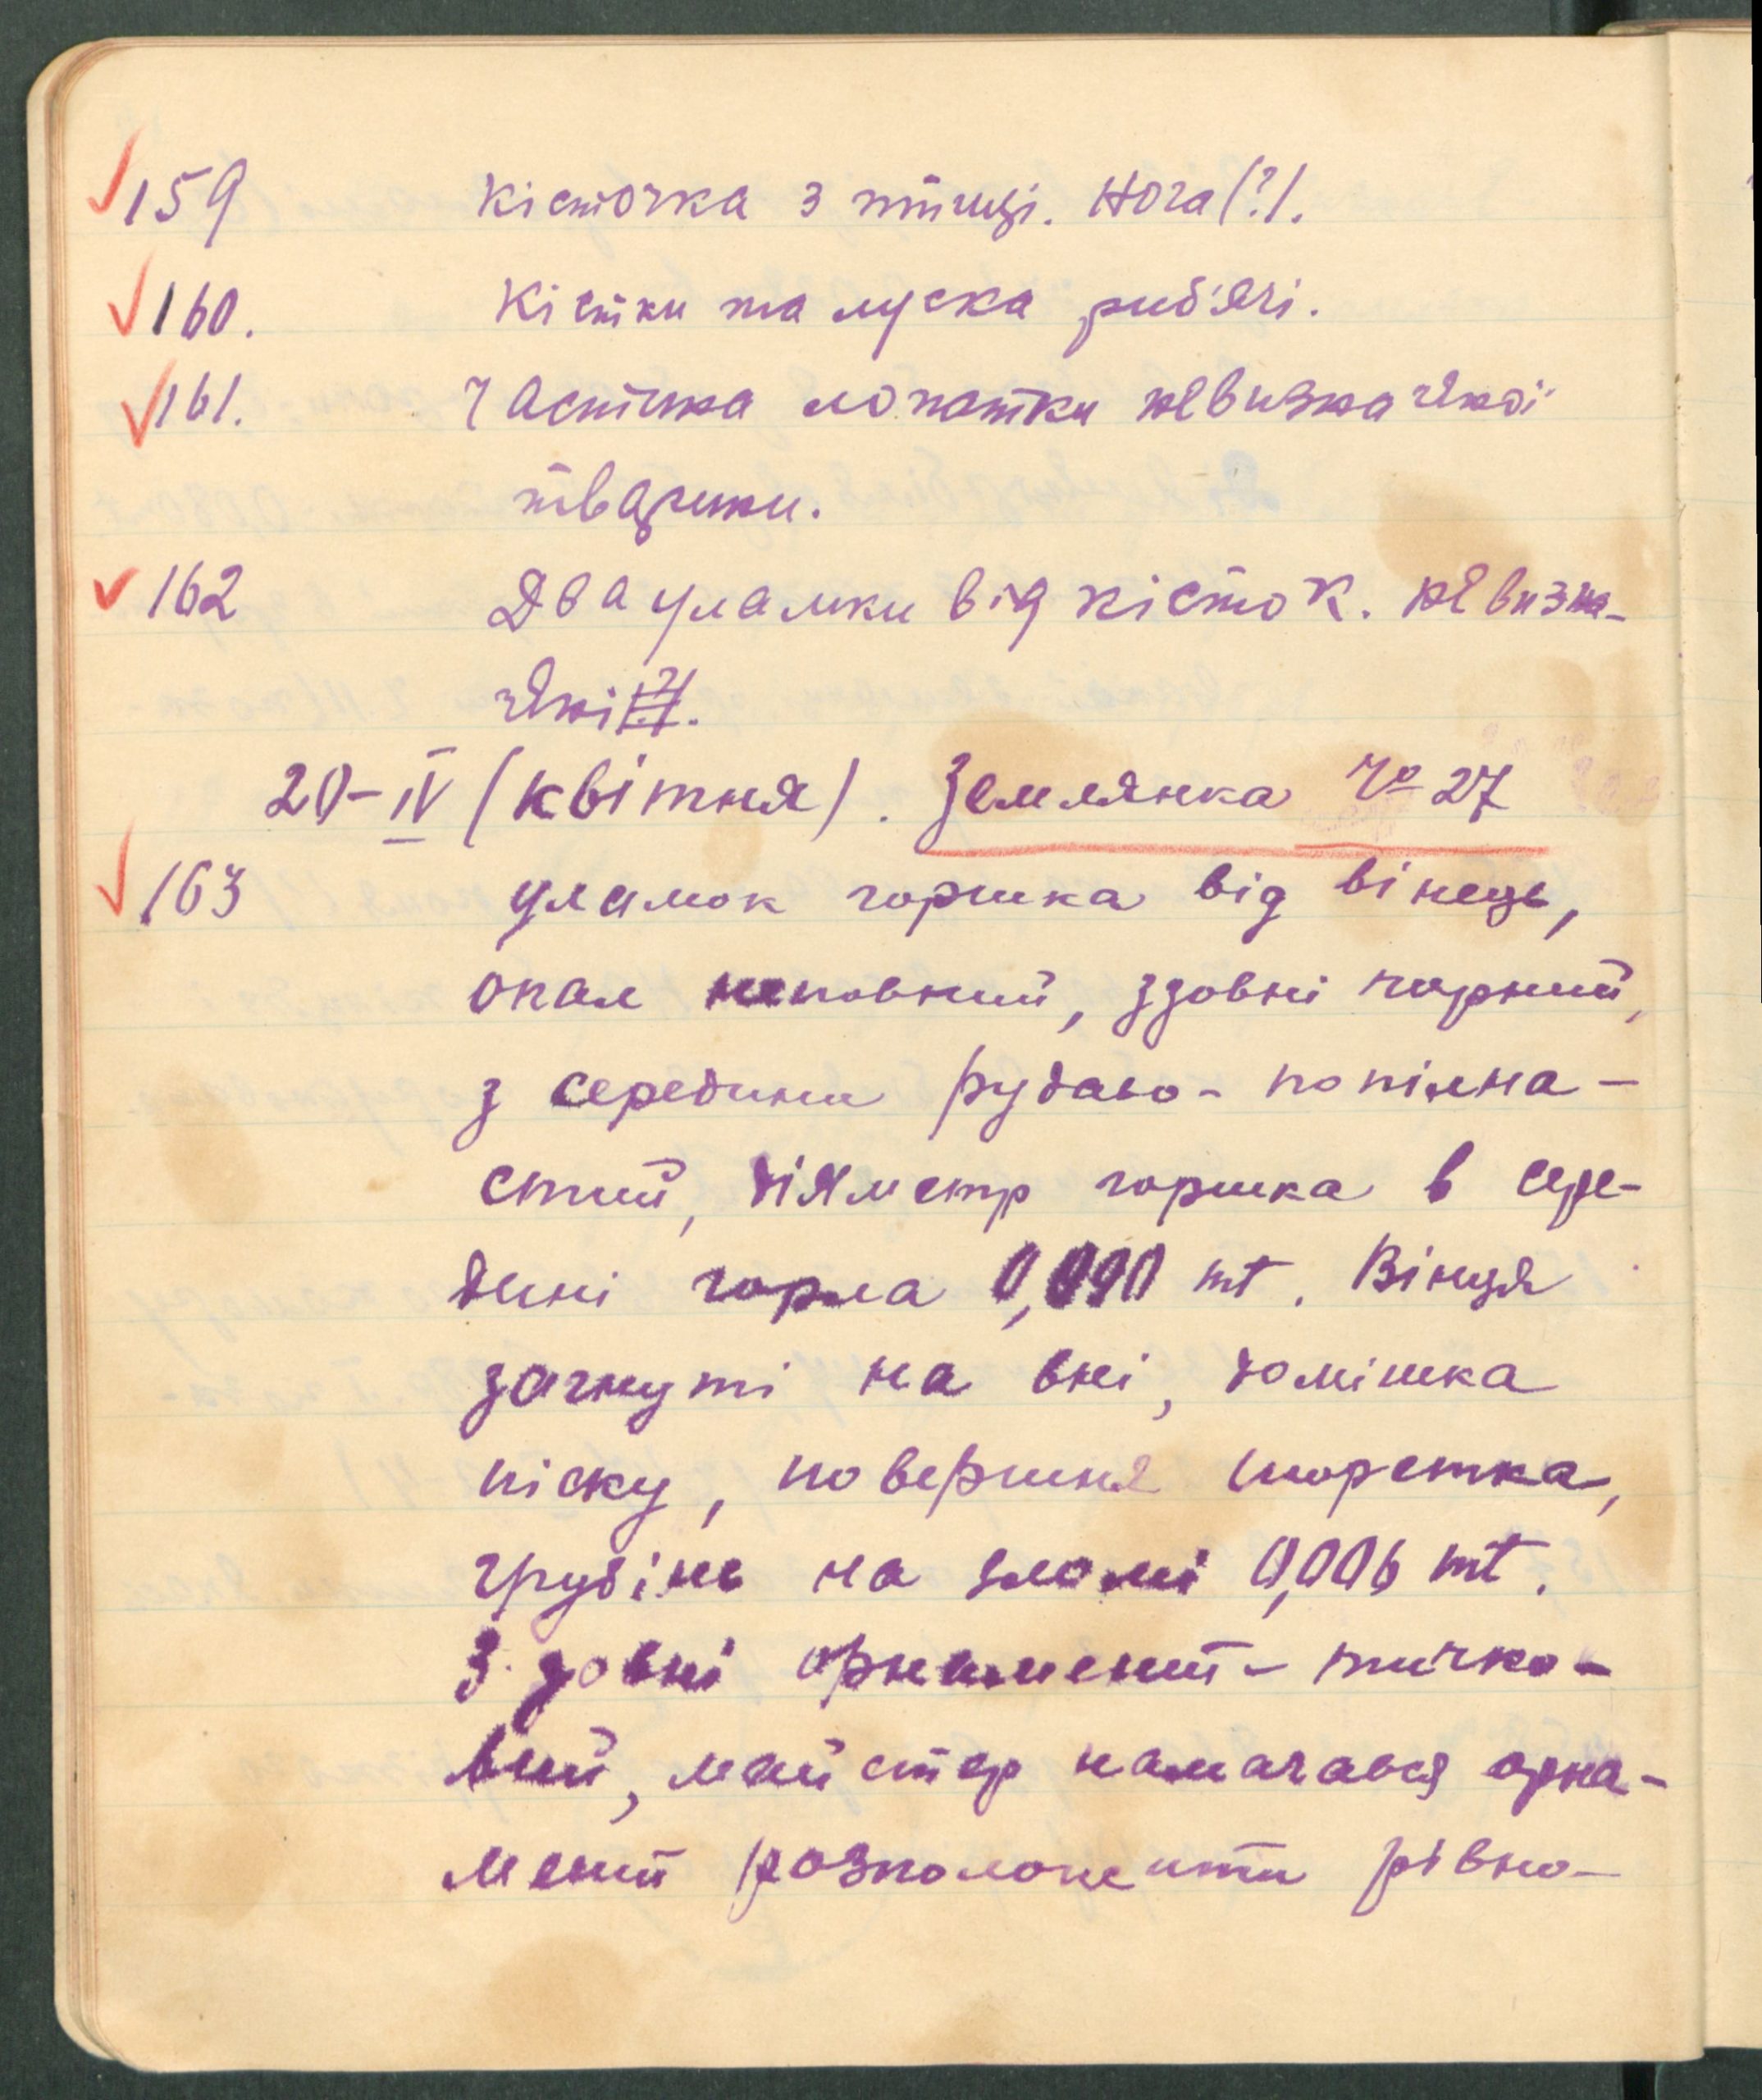 159 Кісточка з птиці. Нога (?).
160. Кістки та луска риб'ячі.
161. Частина лопатки невизначеної
тварини.
162 Два уламки від кісток. Невизна-
чені
20-IV (квітня). Землянка № 27
163 уламок горшка від вінець,
опал неповний, ззовні чорний,
з середини рудаво-попілна-
стий, діяметр горшка в сере-
дині горла 0,090 mt. Вінця
загнуті на вні, домішка
піску, поверхня шорстка,
грубінь на зломі 0,006 mt.
З зовні орнамент - тичко-
вий, майстер намагався орна-
мент розположити рівно-